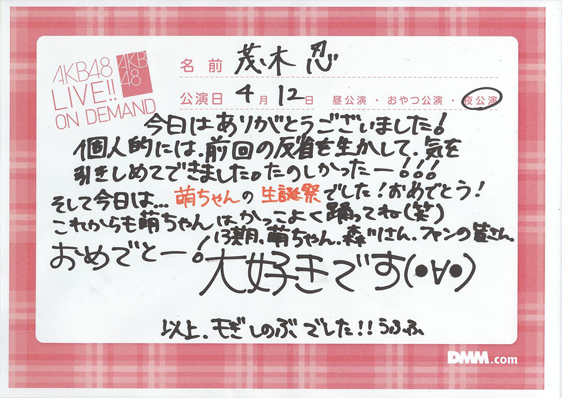 AKB48
LIVE!!
ON DEMAND
AKB
48
名前 茂木忍
公演日 4月12日 昼公演・おやつ公演・夜公演
今日はありがとうございました!
個人的には、前回の反省を生かして、気を
引きしめてできました。たのしかったー!!!
そして今日は…萌ちゃんの生誕祭でした!おめでとう!
これからも萌ちゃんはかっこよく踊ってね(笑)
13期、萌ちゃん、森川さん、ファンの皆さん
おめでとー!大好きです(•∀•)
以上、もぎしのぶでした!!うふふ
DMM.com